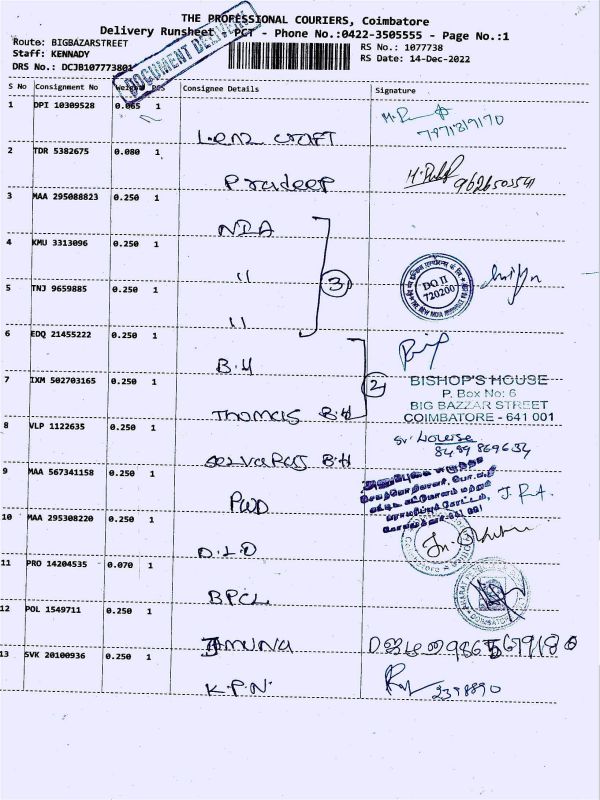 THE PROFESSIONAL COURIERS, Coimbatore
Delivery Runsheet - PCT - Phone No.:0422-3505555 - Page No.:1
Route: BIGBAZARSTREET
Staff: KENNADY
DRS No.: DCJB107773801
RS No.: 1077738
RS Date: 14-Dec-2022
DOCUMENT DELIVERY
S No Consignment No Weight PCS Consignee Details Signature
1 DPI 10309528 0.065 1
Lenz craft
7971819170
2 TDR 5382675 0.080 1
Pradeep
9626503541
3 MAA 295088823 0.250 1
NIA
4 KMU 3313096 0.250 1
"
3
DO II
720200
5 TNJ 9659885 0.250 1
"
6 EDQ 21455222 0.250 1
B.H
2
BISHOP'S HOUSE
P. Box No: 6
BIG BAZZAR STREET
COIMBATORE - 641 001
7 IXM 502703165 0.250 1
Thomas B.H
8 VLP 1122635 0.250 1
Selvaraj B.H
Sr. Lourse
8489869634
9 MAA 567341158 0.250 1
PWD
10 MAA 295308220 0.250 1
D.L.O
11 PRO 14204535 0.070 1
BPCL
12 POL 1549711 0.250 1
Jamuna
13 SVK 20100936 0.250 1
K.P.N.
2398890